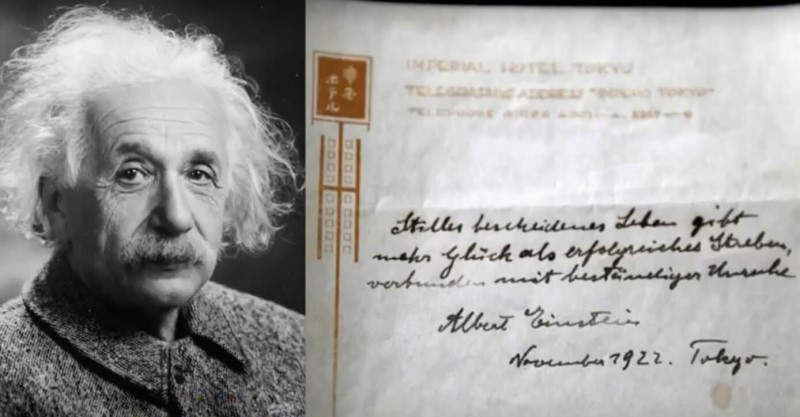 IMPERIAL HOTEL TOKYO
TELEGRAPHIC ADDRESS "IMPEHO TOKYO"
TELEPHONE
ホテル
Stilles bescheidenes Leben gibt
mehr Glück als erfolgreiches Streben,
verbunden mit beständiger Unruhe
Albert Einstein
November 1922. Tokyo.